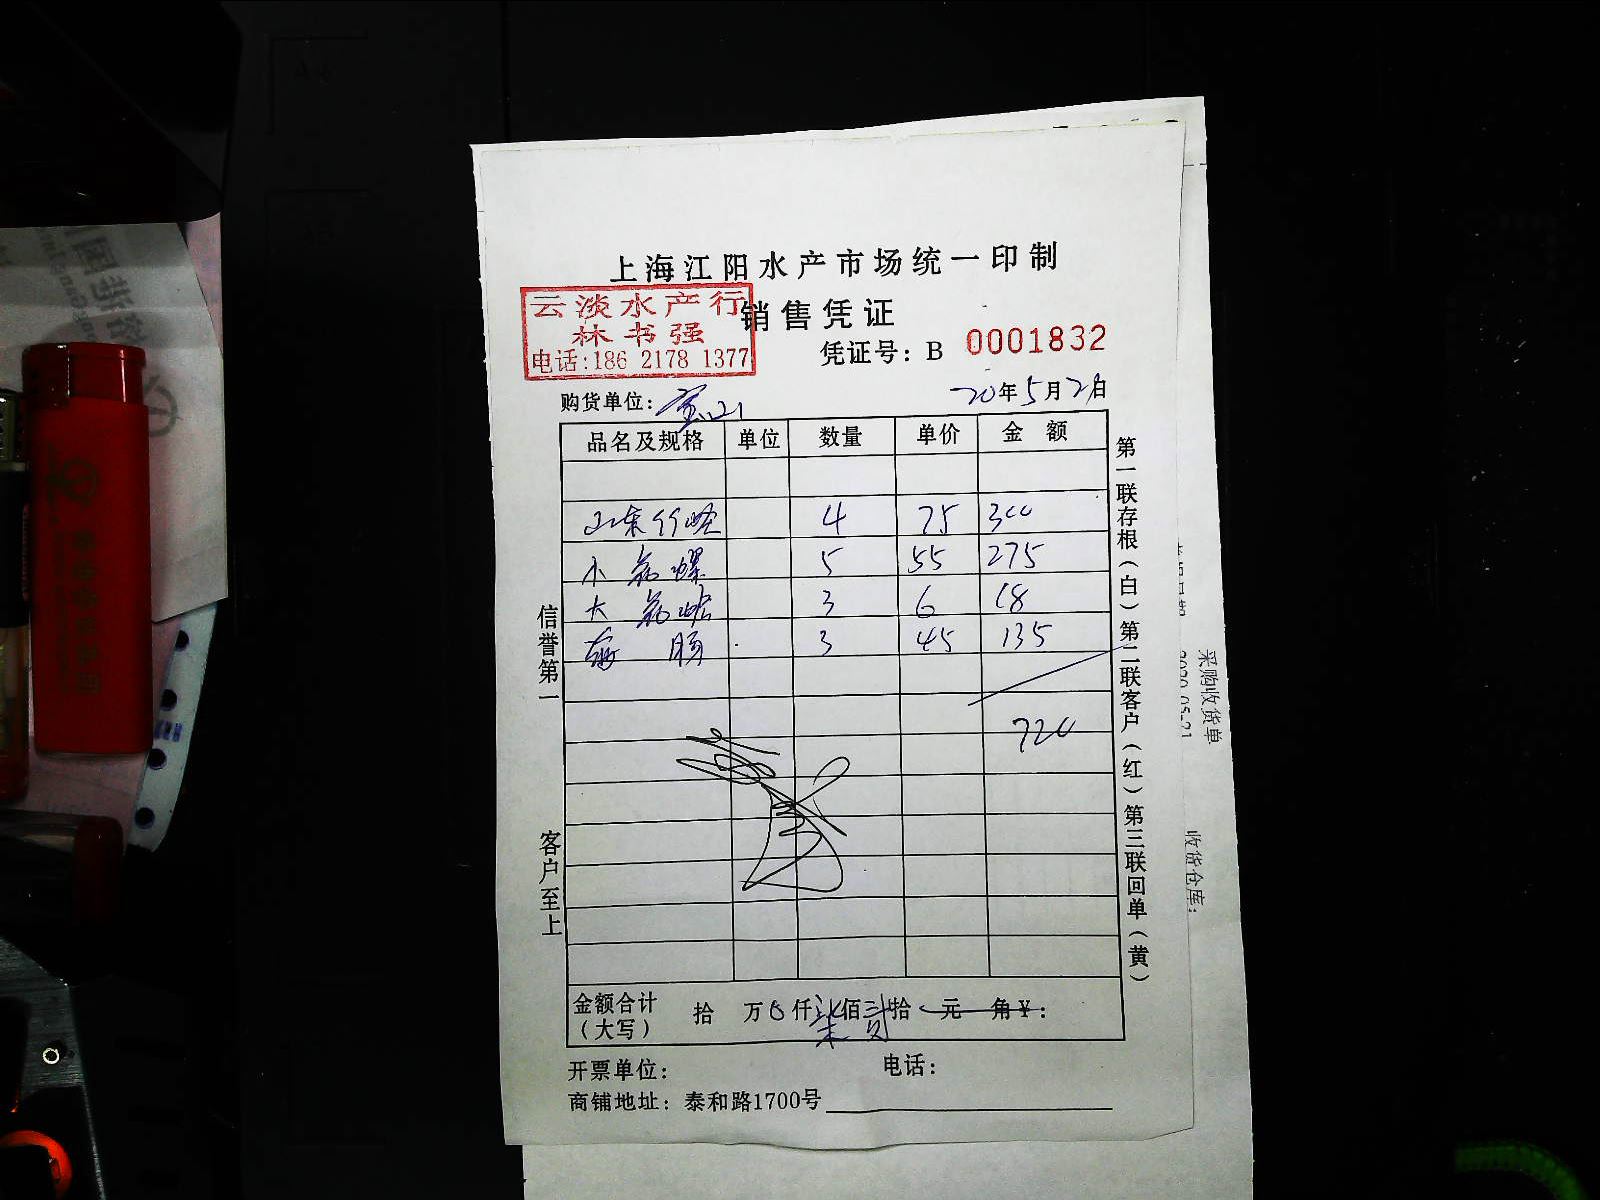 上海江阳水产市场统一印制
云淡水产行
林书强
电话:186 2178 1377
销售凭证
凭证号: B 0001832
购货单位: 宝山
20年5月21日
品名及规格 单位 数量 单价 金额
山东 4 75 300
小 螺 5 55 275
大 3 6 18
海肠 3 45 135
720
金额合计 拾 万 仟柒佰贰拾 元 角¥:
(大写)
开票单位: 电话:
商铺地址: 泰和路1700号
信誉第一
客户至上
第一联存根(白)第二联客户(红)第三联回单(黄)
采购收货单
2020-05-21
收货仓库: